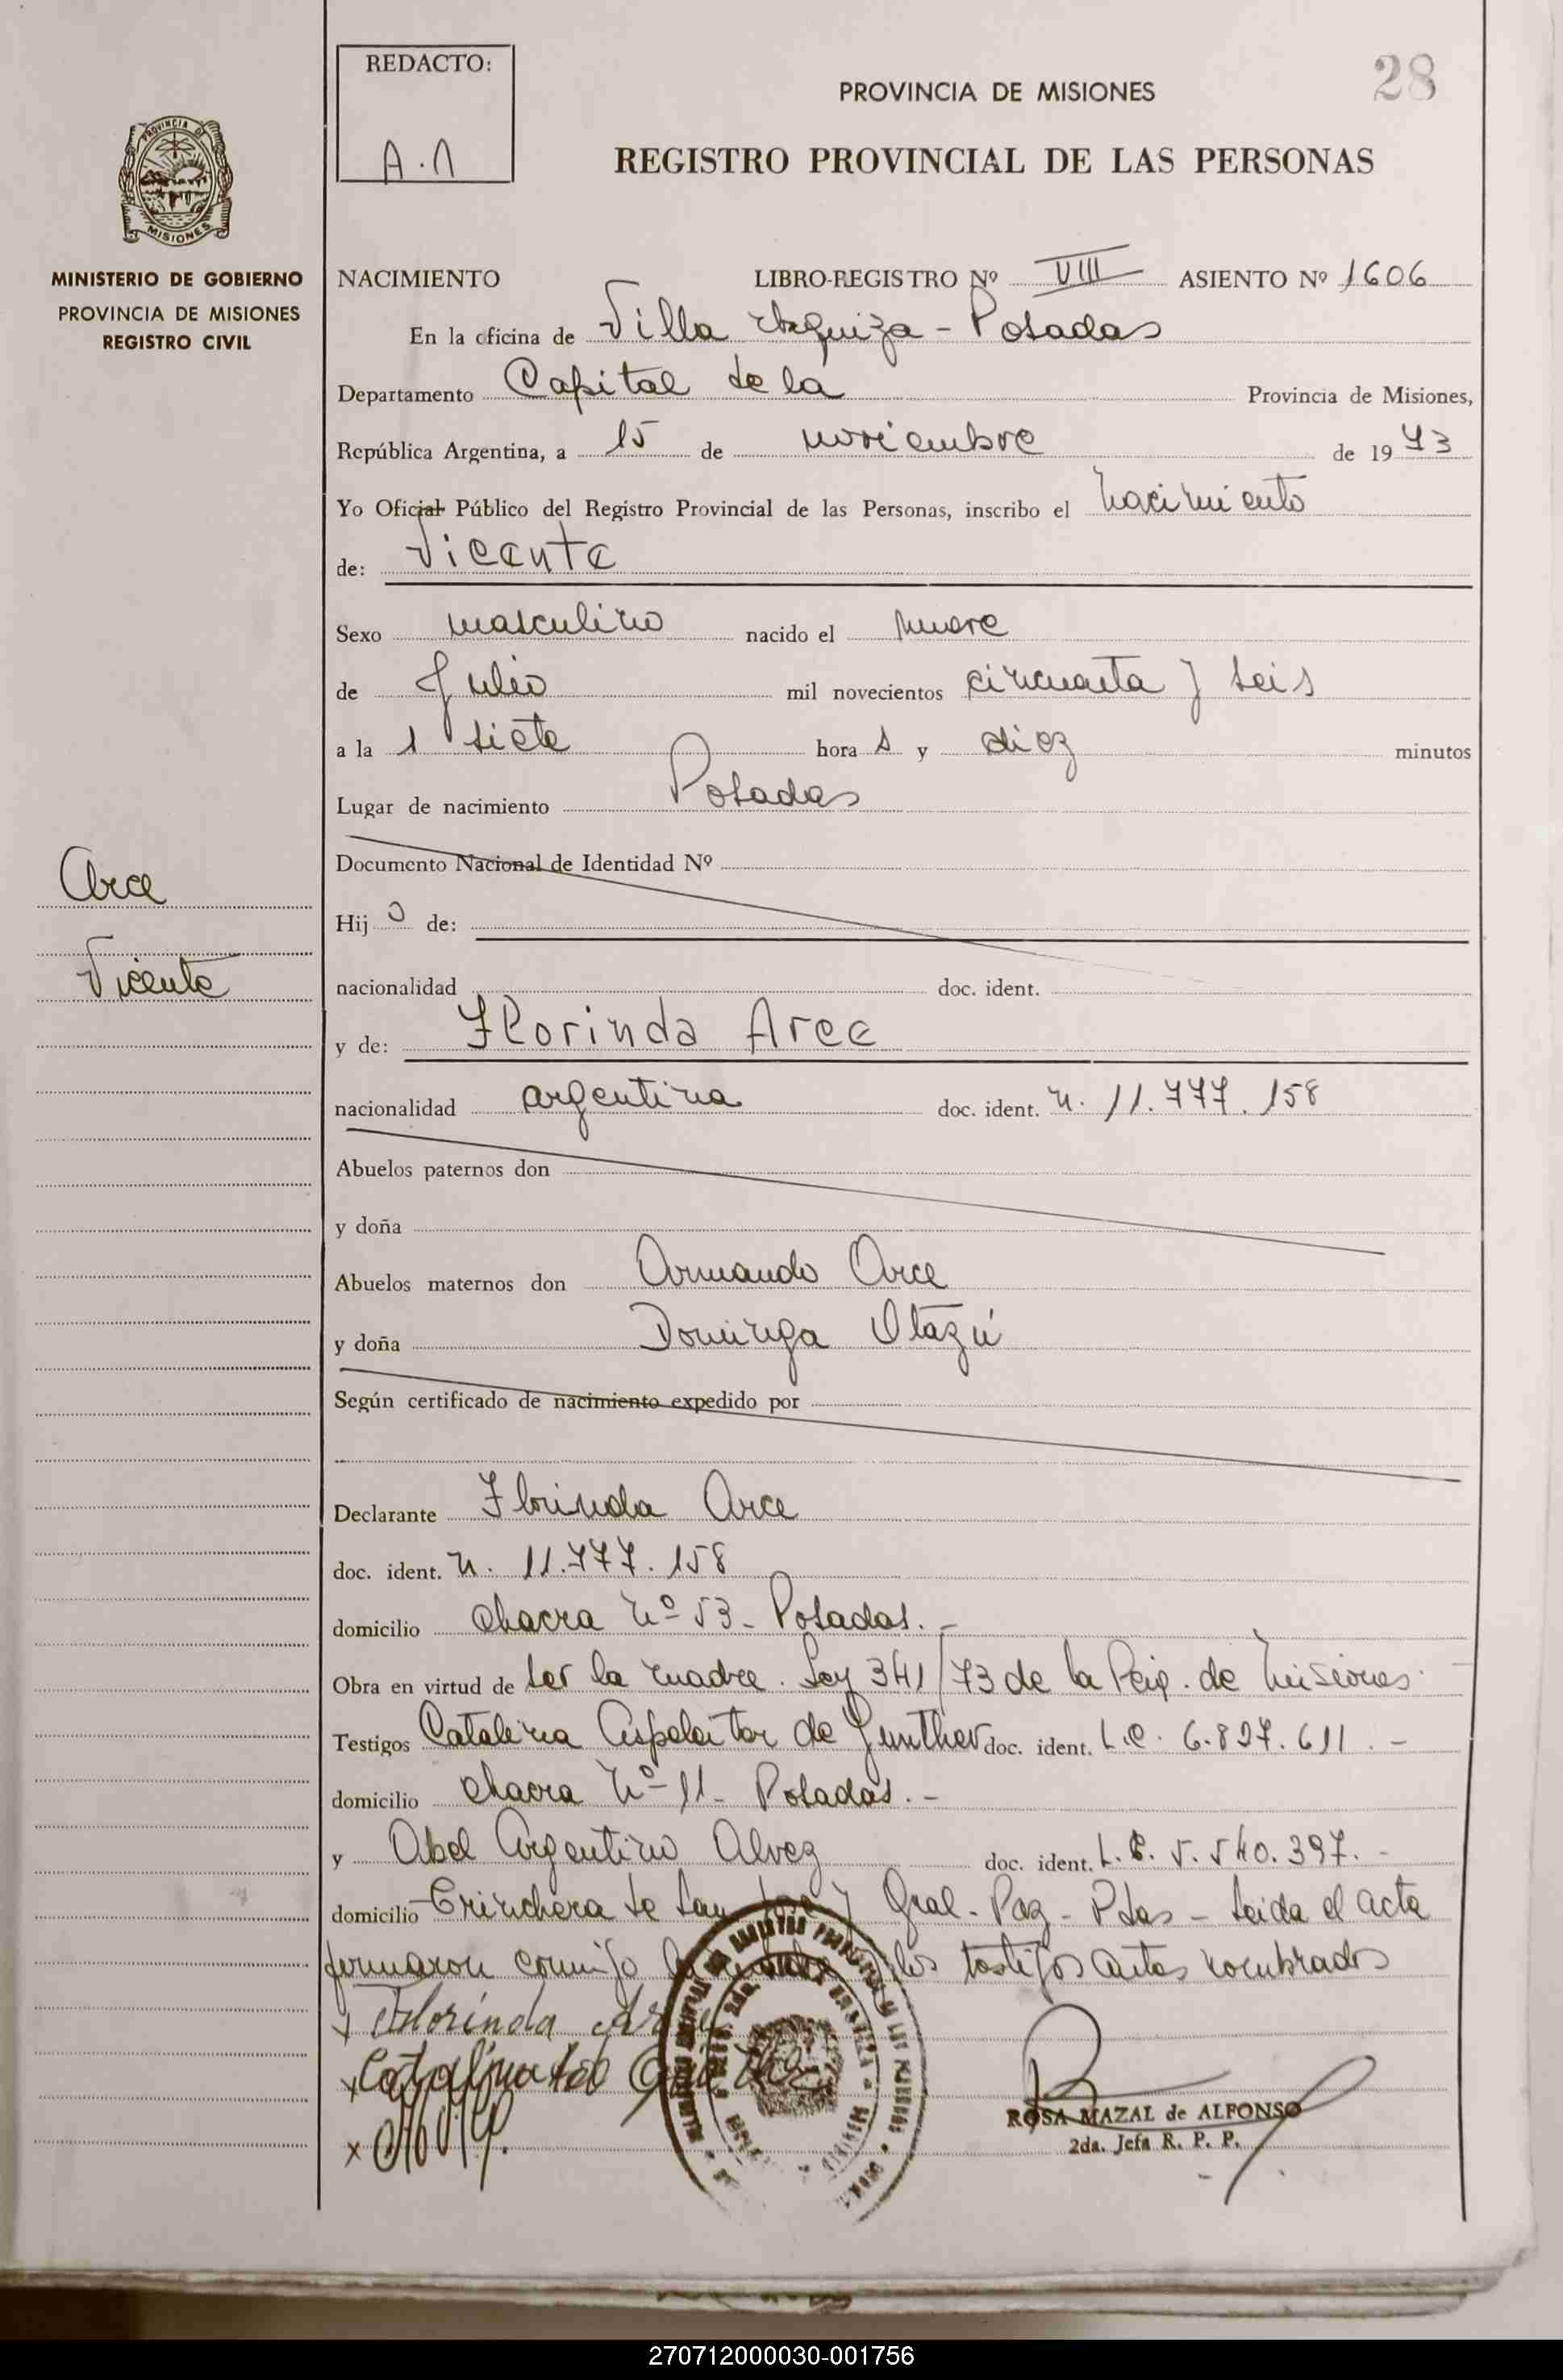 REDACTO:
A.A
PROVINCIA DE MISIONES
28
REGISTRO PROVINCIAL DE LAS PERSONAS
PROVINCIA DE
MISIONES
MINISTERIO DE GOBIERNO
PROVINCIA DE MISIONES
REGISTRO CIVIL
NACIMIENTO LIBRO-REGISTRO Nº VIII ASIENTO Nº 1606
En la oficina de Villa Urquiza - Posadas
Departamento Capital de la Provincia de Misiones,
República Argentina, a 15 de noviembre de 1973
Yo Oficial Público del Registro Provincial de las Personas, inscribo el nacimiento
de: Vicente
Sexo masculino nacido el nueve
de Julio mil novecientos cincuenta y seis
a la s siete hora s y diez minutos
Lugar de nacimiento Posadas
Documento Nacional de Identidad Nº
Arce
Hij o de:
Vicente
nacionalidad doc. ident.
y de: Florinda Arce
nacionalidad argentina doc. ident. n. 11.777.158
Abuelos paternos don
y doña
Abuelos maternos don Armando Arce
y doña Dominga Otazú
Según certificado de nacimiento expedido por
Declarante Florinda Arce
doc. ident. n. 11.777.158
domicilio chacra nº 53 - Posadas. -
Obra en virtud de ser la madre. Ley 341/73 de la Pcia. de Misiones.
Testigos Catalina de Gunther doc. ident. L.C. 6.827.611. -
domicilio chacra nº 11 - Posadas. -
y Abel Argentino Alvez doc. ident. L.E. 5.540.397. -
domicilio Trinchera de San José y Gral. Paz - Pdas - Leida el acta
firmaron conmigo los testigos antes nombrados
x Florinda Arce
x Catalina de Gunther
x
ROSA MAZAL de ALFONSO
2da. Jefa R. P. P.
270712000030-001756